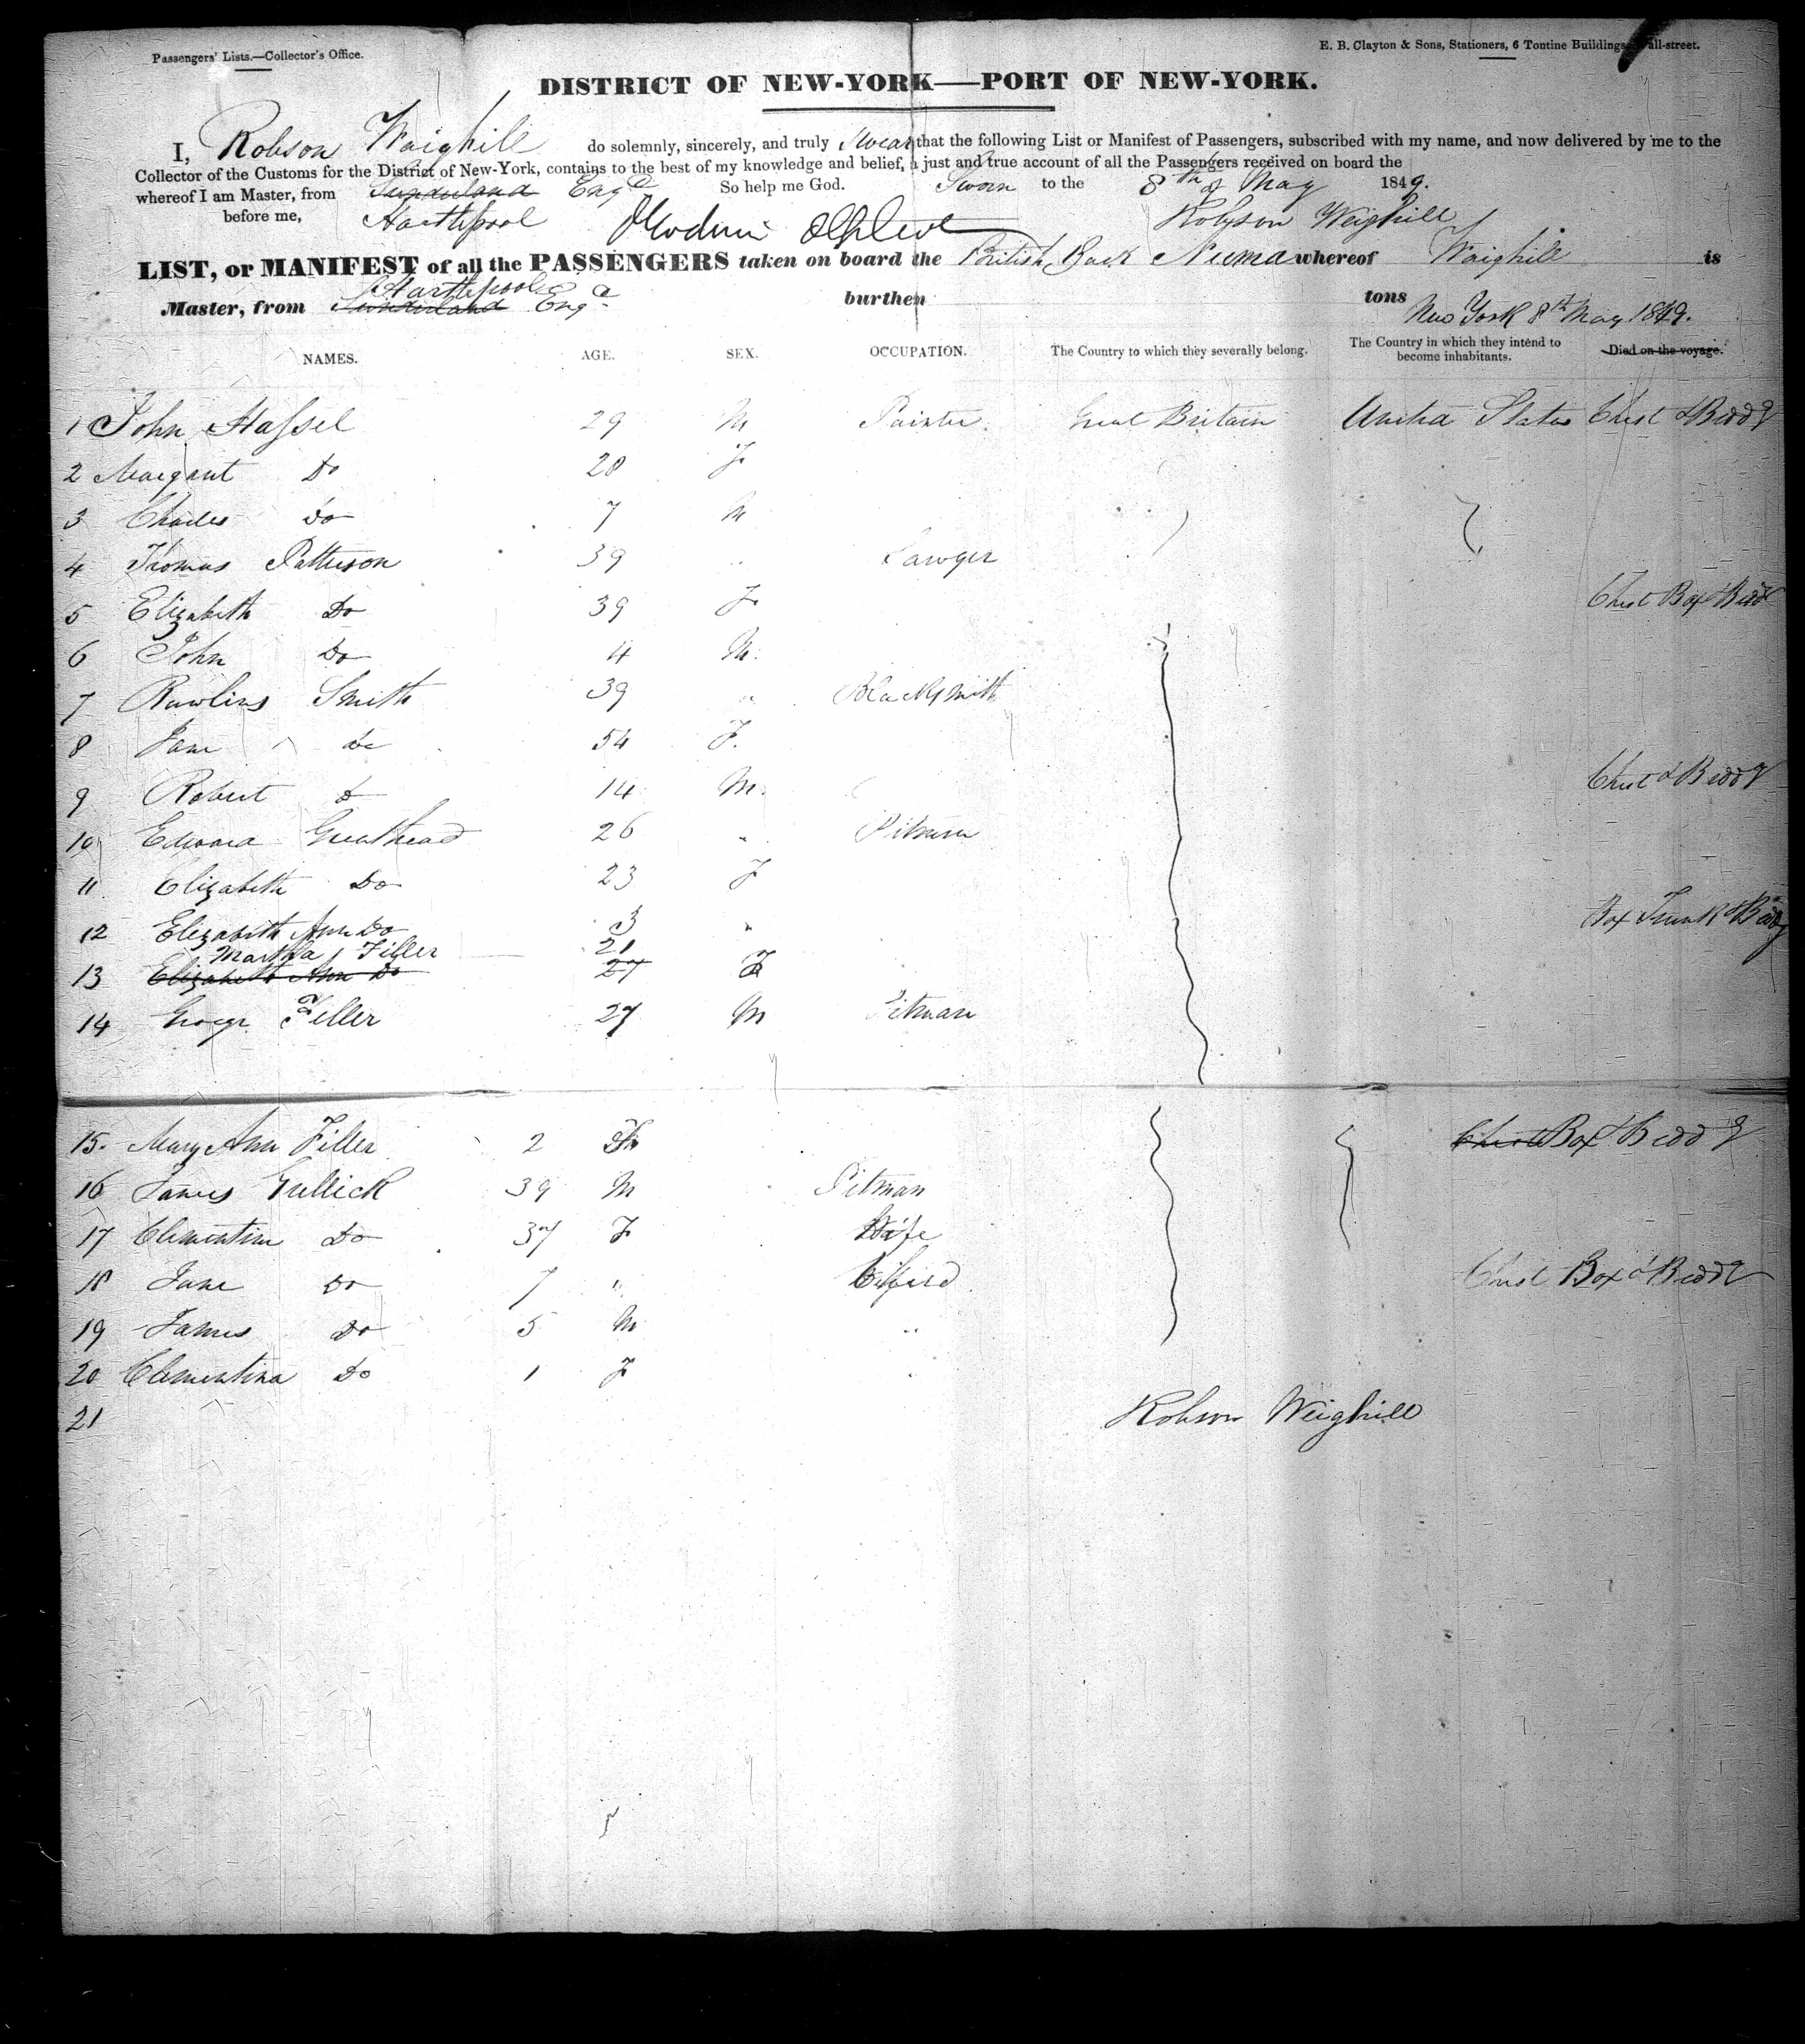 Passengers' Lists.—Collector's Office.
E. B. Clayton & Sons, Stationers, 6 Tontine Buildings, Wall-street.
DISTRICT OF NEW-YORK—PORT OF NEW-YORK.
I, Robson Waighill do solemnly, sincerely, and truly Swear that the following List or Manifest of Passengers, subscribed with my name, and now delivered by me to the
Collector of the Customs for the District of New-York, contains to the best of my knowledge and belief, a just and true account of all the Passengers received on board the
whereof I am Master, from Sunderland Engd So help me God. Sworn to the 8th of May 1849.
before me, Harthpool Robson Weighill
LIST, or MANIFEST of all the PASSENGERS taken on board the British Bark Numa whereof Waighill is
Harthpool
Master, from Sunderland Engd burthen tons
New York 8th May 1849.
NAMES. AGE. SEX. OCCUPATION. The Country to which they severally belong. The Country in which they intend to become inhabitants. Died on the voyage.
1 John Hassel 29 M Painter Great Britain United States Chest & Beddg
2 Margaret Do 28 F
3 Charles Do 7 M
4 Thomas Patterson 39 " Sawyer
5 Elizabeth Do 39 F Chest Box & Bedd
6 John Do 4 M
7 Rawlins Smith 39 " Blacksmith
8 Jane do 54 F.
9 Robert do 14 M. Chest & Beddg
10 Edward Greathead 26 " Pitman
11 Elizabeth Do 23 F
12 Elizabeth Ann Do 3 " Box Trunk & Bedg
Martha Filler 21
13 Elizabeth Ann Do 27 F
14 George Filler 27 M Pitman
15. Mary Ann Filler 2 F Chest Box & Bedd g
16 James Gullick 39 M Pitman
17 Clementina Do 37 F Wife
18 Jane Do 7 " Child Chest Box & Beddg
19 James Do 5 M "
20 Clementina Do 1 F "
21
Robson Weighill